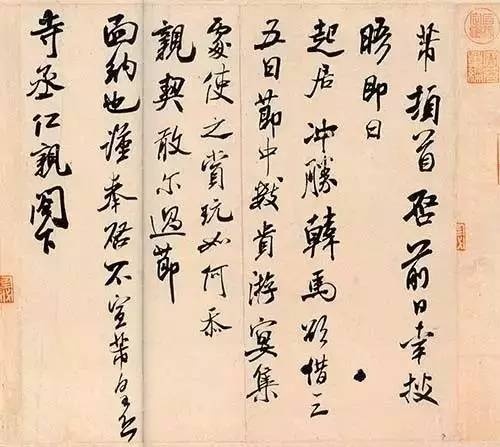 芾頓首啓前日幸披
晤即日
起居冲勝韓馬欲借三
五日節中數貴游宴集
處使之賞玩如何忝
親契敢尔過節
面納也謹奉啓不宣芾皇恐
寺丞仁親閣下